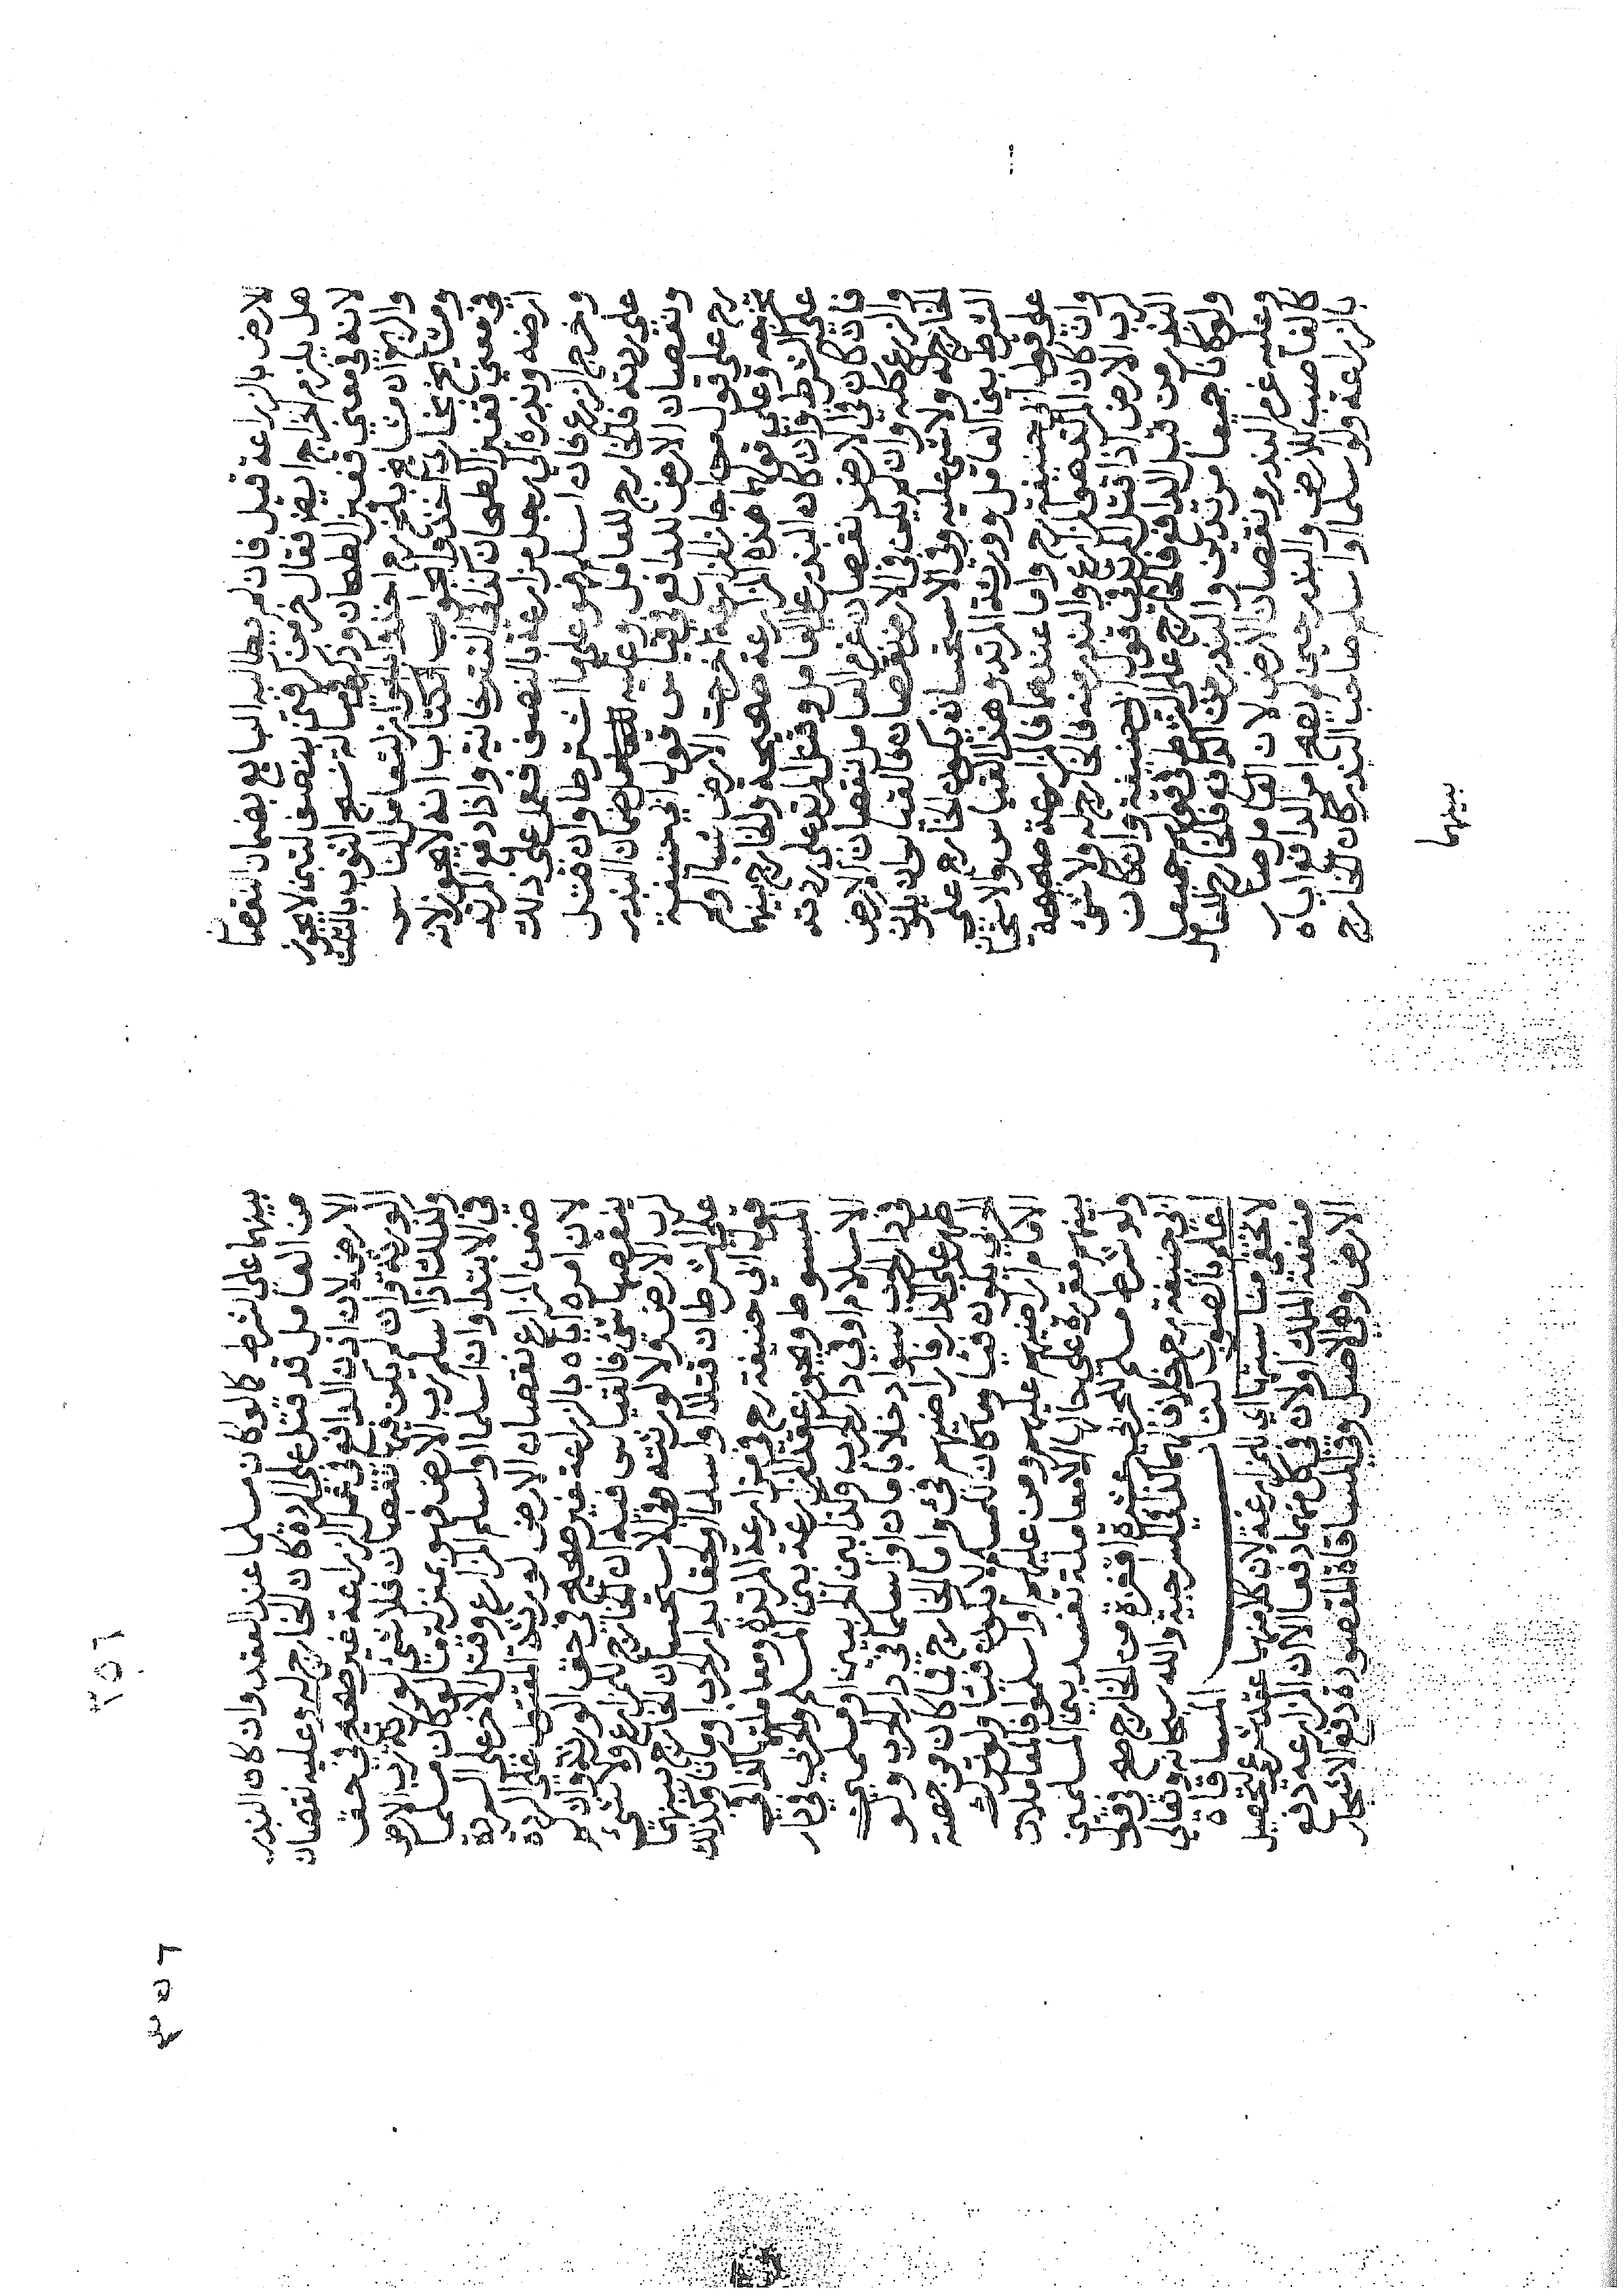 الارض بالزراعة قيل فان لم يطالبه البايع بضمان النقصان
هل يلزم الخراج ايضا فقال خرمن كرفتن بنصف التبن لا يجوز
لانه في معنى قفيز الطحان وذكر مسالة نسج الثوب بالثلث
والربع ان مشايخ بلخ رح اخذوا بالجواز لتعامل الناس
ومشايخ بخارى اخذوا بجواب الكتاب انه لا يجوز لانه
في معنى قفيز الطحان كذا في التتارخانية واذا دفع المرتد
ارضه وبذره الى رجل مزارعة بالنصف فعمل على ذلك
وخرج الزرع فان اسلم فهو على ما اشترطا وان قتل
على ردته فالخارج للعامل وعليه ضمان البذر
ونقصان الارض للدافع في قياس قول ابي حنيفة
رح على قول من اجاز المزارعة اخرجت الارض شيا او لم
تخرجه وعلى قولهما هذه المزارعة صحيحة والخارج بينهما
على الشرط وان كان البذر على العامل وقتل المرتد على ردته
فان كان في الارض نقصان غرم العامل نقصان الارض
والزرع كله وان لم يكن في الارض نقصان فالقياس ان يكون
الخارج له ولا شي عليه وفي الاستحسان يكون الخارج على
الشرط بين العامل وورثة المرتد وهذا القياس والاستحسان
على قول ابي حنيفة رح واما عندهما فالمزارعة صحيحة
وان كان المرتد هو المزارع والبذر منه فالخارج له ولا شي
لرب الارض اذا قتل المرتد في قول ابي حنيفة وان كان
البذر من قبل الدافع فالخارج على الشرط في قولهم جميعا
ولو كانا جميعا مرتدين والبذر من الدافع فالخارج للعامل
وعليه غرم البذر ونقصان الارض لان العامل صار
كالغاصب للارض والبذر حين لم يصح امر الدافع اياه
بالزراعة ولو اسلما او اسلم صاحب البذر كان الخارج
بينهما
٣٥٦
٣٥٦
بينهما على الشرط كما لو كان مسلما عند العقد وان كان البذر
من العامل وقد قتل على الردة كان الخارج له وعليه نقصان
الارض لان اذن الدافع في عمل الزراعة غير صحيح في حق
الورثة وان لم يكن فيها نقصان فلا شي لورثة رب الارض
وكذلك اذا اسلم رب الارض فهو بمنزلة ما لو كان مسلما
في الابتداء وان اسلما او اسلم المزارع وقتل الاخر على الردة
ضمن المزارع نقصان الارض لورثة المقتول على الردة
لان امره اياه بالزراعة غير صحيح في حق الورثة وان لم
ينقصها شي فالقياس فيه ان الخارج للمزارع ولا شي
لرب الارض ولا لورثته وفي الاستحسان الخارج بينهما
على الشرط وان قتلا او اسلما او لحقا بدار الحرب او ماتا وكذلك
قول ابي حنيفة رح في مزارعة المرتدة ومعاملتها كذا في
المبسوط ويجوز عقد المزارعة بين المسلم والحربي في دار
الاسلام او في دار الحرب وكذا بين الحربيين او مسلمين
في دار الحرب سواء دخلا بامان او اسلما في دار الحرب ولو
ظهر على الدار فاراضيهم فئ واما الخارج فما كان من حصة
الحربي يكون فيئا وما كان للمسلم لا يكون فيئا ولو ترك
الامام اراضيهم عليهم ومن عليهم او اسلموا فالمعاملات
بينهم مقررة على حالها الا معاملة تفسد بين المسلمين
ولو شرط مسلم لحربي عشرة اقفزة من الخارج صح في قول
ابي حنيفة رح خلافا لهما كذا في السرخسية والله سبحانه وتعالى
اعلم بالصواب كتاب المساقاة
لا تخفى مناسبتها بالمزارعة لان كلا منهما عقد شرع لتحصيل
منفعة الملك ولان في كل منهما دفعا الا ان المزارعة دفع
الارض وهي الاصل وفي المساقاة المقصودة دفع الاشجار